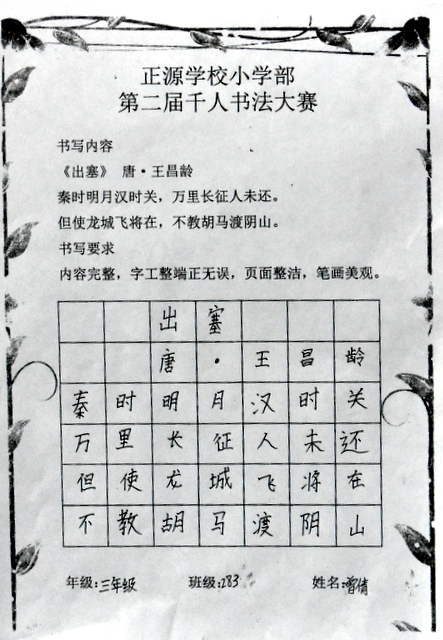 正源学校小学部
第二届千人书法大赛
书写内容
《出塞》 唐·王昌龄
秦时明月汉时关，万里长征人未还。
但使龙城飞将在，不教胡马渡阴山。
书写要求
内容完整，字工整端正无误，页面整洁，笔画美观。
出塞
唐·王昌龄
秦时明月汉时关
万里长征人未还
但使龙城飞将在
不教胡马渡阴山
年级:三年级 班级:283 姓名:曾倩